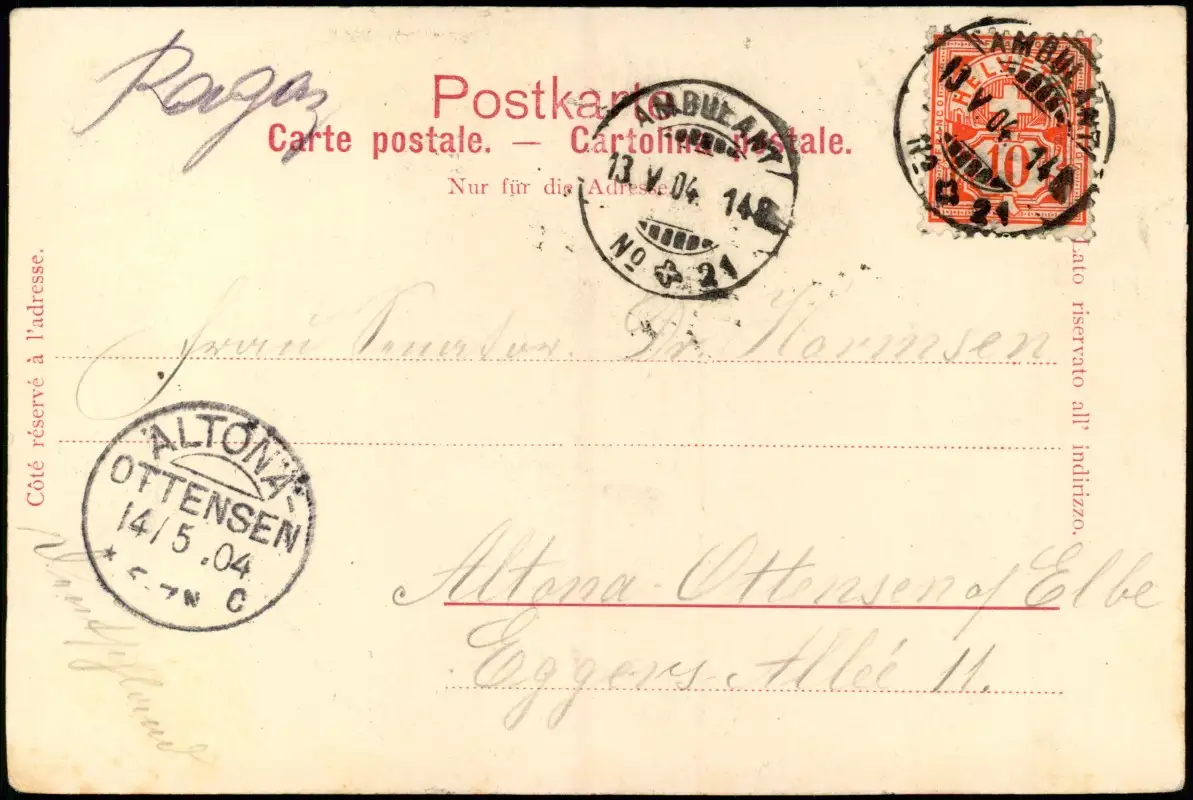 Ragaz
Postkarte
Carte postale. — Cartolina postale.
Nur für die Adresse.
AMBULANT
13 V 04 148
No 21
HELVETIA
10
AMBULANT
13 V 04 148
No 21
Côté réservé à l'adresse.
Lato riservato all' indirizzo.
Frau Senator Dr. Hormsen
ALTONA-
OTTENSEN
14/5.04
5-7N C
Altona-Ottensen a/ Elbe
Eggers-Allée 11.